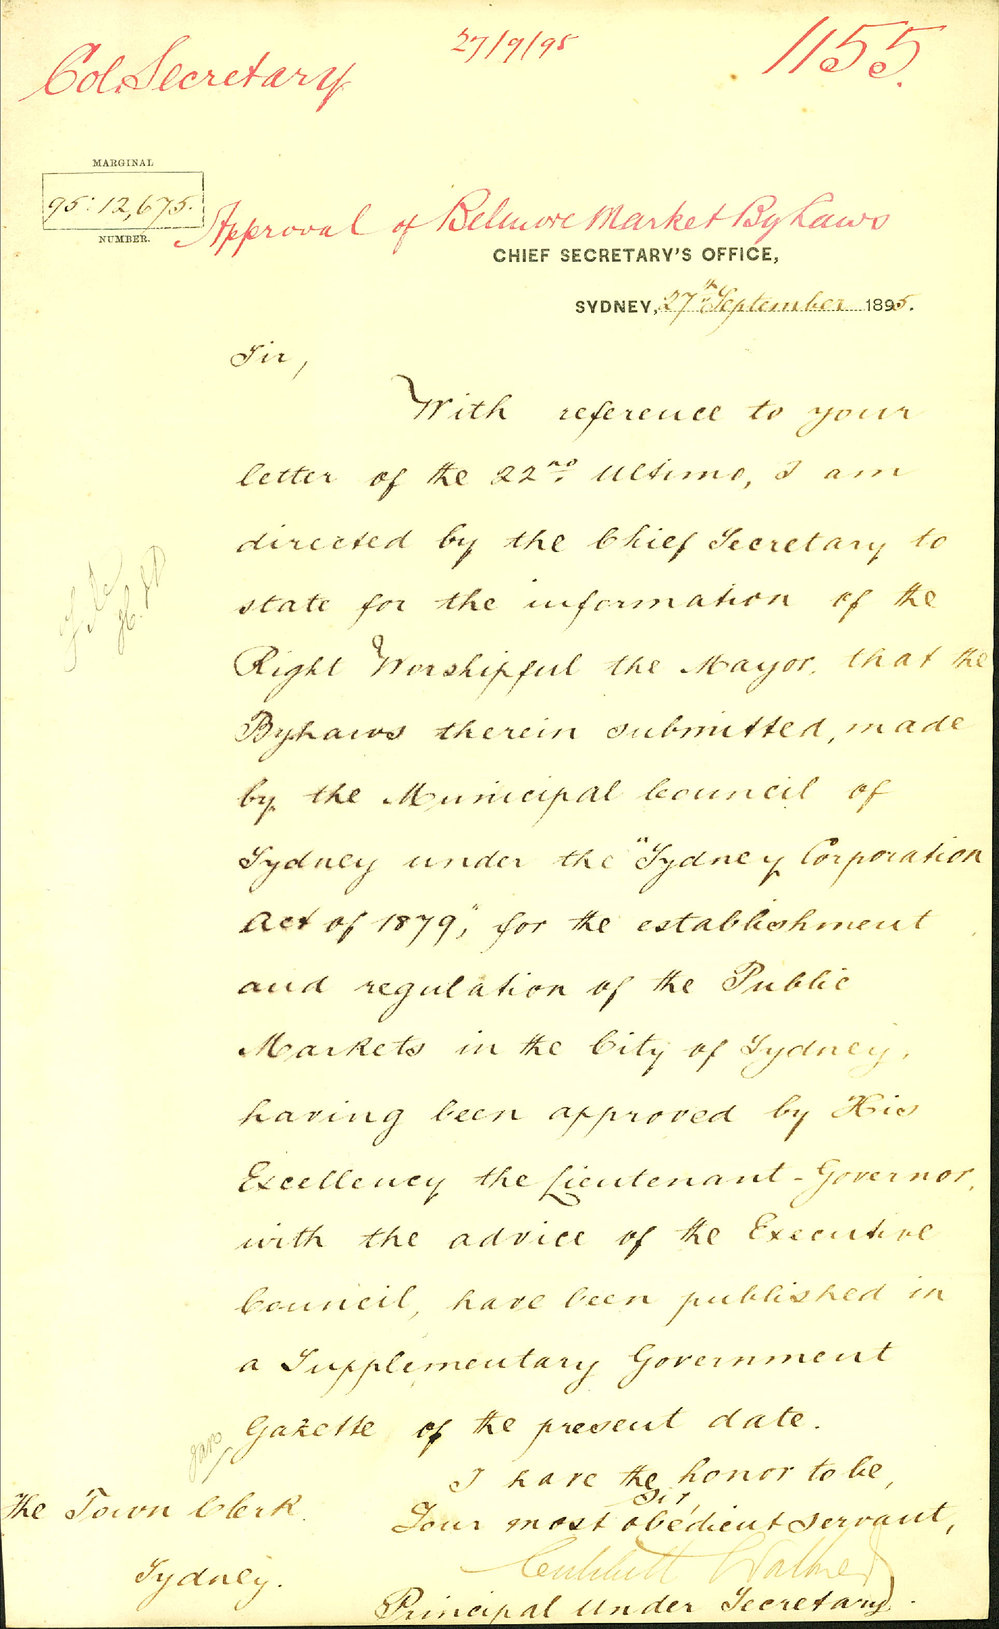 27/9/95
1155.
Col. Secretary
MARGINAL
95: 12,675.
NUMBER.
Approval of Belmore Market By Laws
CHIEF SECRETARY'S OFFICE,
SYDNEY, 27th September 1895.
Sir,
With reference to your
letter of the 22nd Ultimo, I am
directed by the Chief Secretary to
state for the information of the
Right Worshipful the Mayor, that the
By Laws therein submitted, made
by the Municipal Council of
Sydney under the "Sydney Corporation
Act of 1879," for the establishment
and regulation of the Public
Markets in the City of Sydney,
having been approved by His
Excellency the Lieutenant-Governor,
with the advice of the Executive
Council, have been published in
a Supplementary Government
Gazette of the present date.
I have the honor to be,
Sir,
Your most obedient servant,
Critchett Walker
Principal Under Secretary.
The Town Clerk.
Sydney.